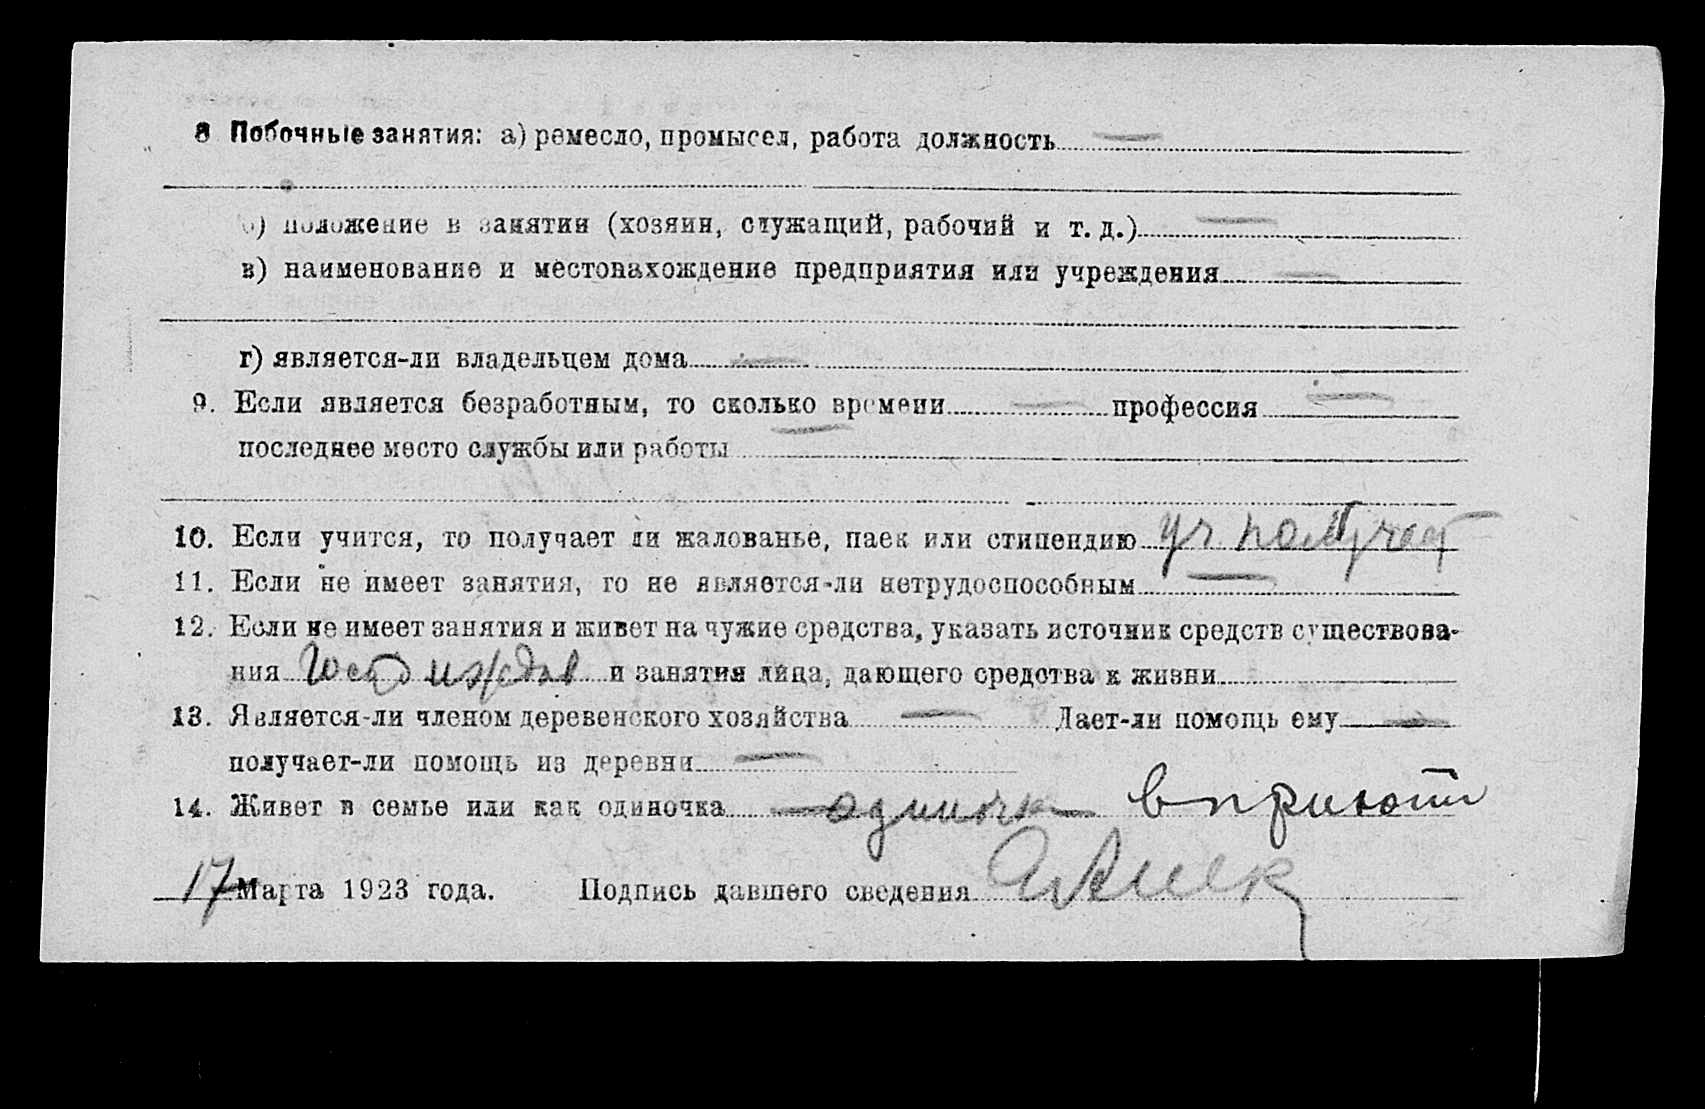 8 Побочные занятия: а) ремесло, промысел, работа должность —
б) положение в занятии (хозяин, служащий, рабочий и т. д.) —
в) наименование и местонахождение предприятия или учреждения —
г) является-ли владельцем дома —
9. Если является безработным, то сколько времени — профессия —
последнее место службы или работы —
10. Если учится, то получает ли жалованье, паек или стипендию уч получает
11. Если не имеет занятия, то не является-ли нетрудоспособным —
12. Если не имеет занятия и живет на чужие средства, указать источник средств существова-
ния иждив и занятия лица, дающего средства к жизни
13. Является-ли членом деревенского хозяйства — Дает-ли помощь ему —
получает-ли помощь из деревни —
14. Живет в семье или как одиночка одиночка в приюти
17 Марта 1923 года. Подпись давшего сведения